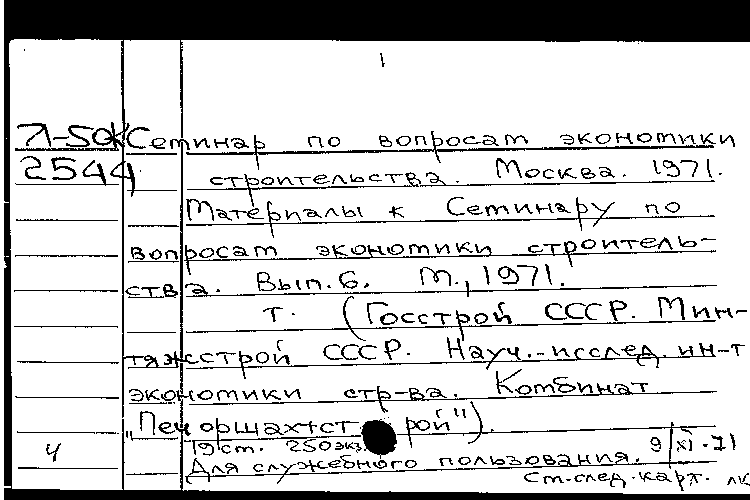 1
Л-50К Семинар по вопросам экономики
2544 строительства. Москва. 1971.
Материалы к Семинару по
вопросам экономики строитель-
ства. Вып. 6. М., 1971.
т. (Госстрой СССР. Мин-
тяжстрой СССР. Науч.-исслед. ин-т
экономики стр-ва. Комбинат
"Печоршахтострой").
19 ст. 250 экз. 9/XI-71
4 Для служебного пользования.
См. след. карт.